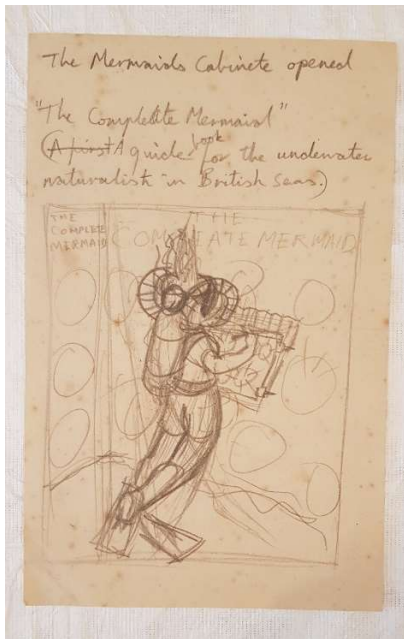 The Mermaids Cabinete opened
"The Complette Mermaid"
(A first A guide book for the underwater
naturalist in British Seas.)
THE
COMPLETE
MERMAID
THE
COMPLEATE MERMAID